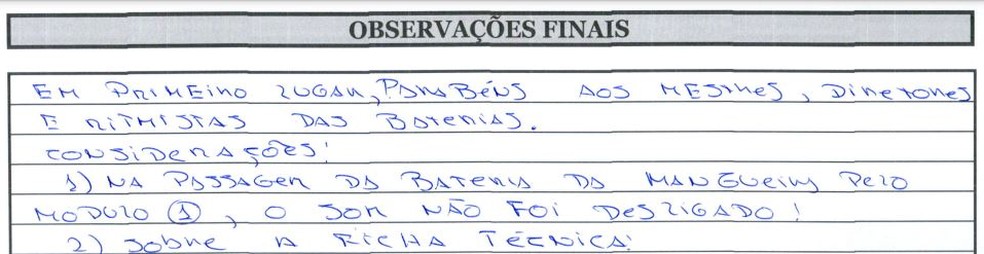 OBSERVAÇÕES FINAIS
EM PRIMEIRO LUGAR, PARABÉNS AOS MESTRES, DIRETORES
E RITMISTAS DAS BATERIAS.
CONSIDERAÇÕES:
1) NA PASSAGEM DA BATERIA DA MANGUEIRA PELO
MODULO 1, O SOM NÃO FOI DESLIGADO!
2) SOBRE A FICHA TÉCNICA: